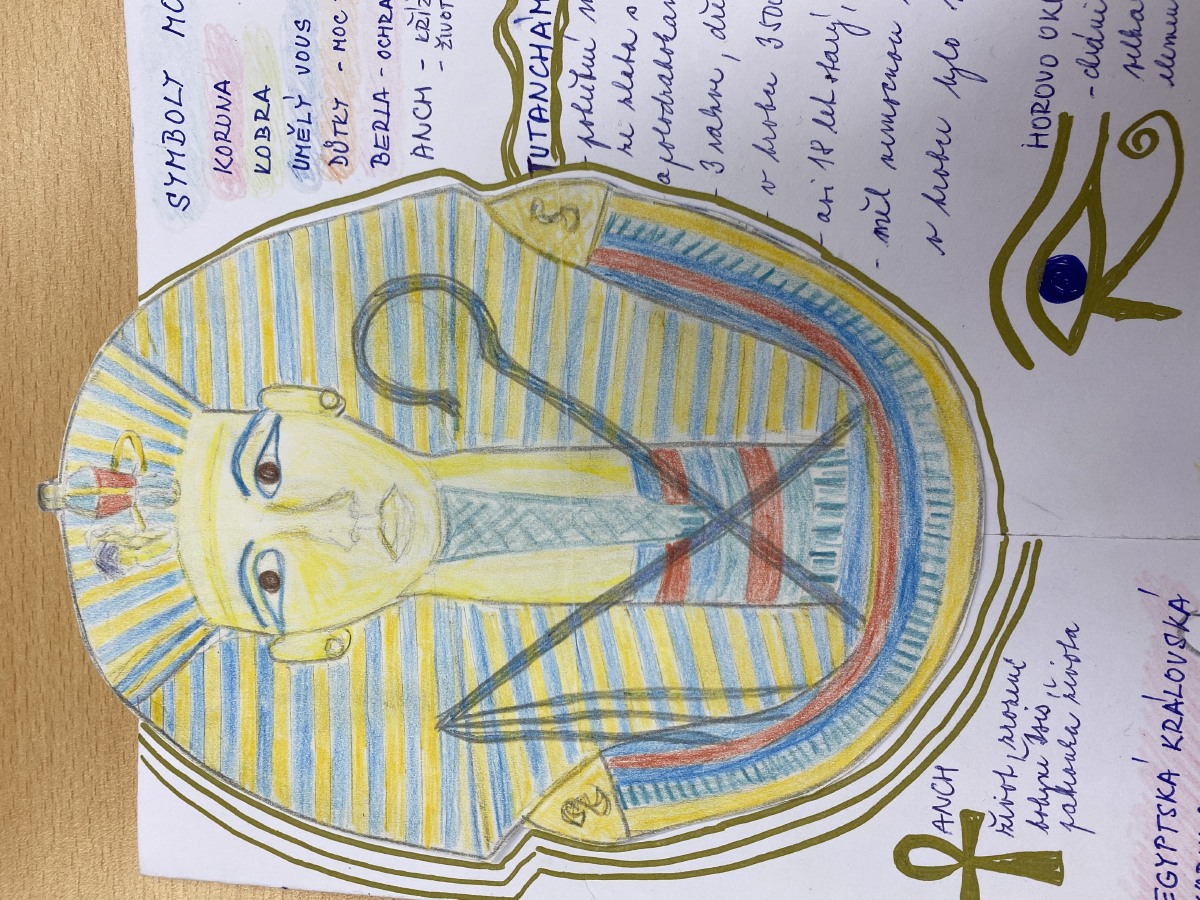 SYMBOLY MO
KORUNA
KOBRA
UMĚLÝ VOUS
DŮTKY - MOC
BERLA - OCHRA
ANCH - KŘÍŽ
- ŽIVOT
TUTANCHÁM
- pohřbení
ze zlata s
a polodrahokam
- 3 rakve, dř
- v hrobu 3500
- asi 18 let starý,
- měl nemocnou
v hrobu bylo
HOROVO OKO
- chrání
ANCH
život, nošené
bohyní Isis
EGYPTSKÁ KRÁLOVSKÁ